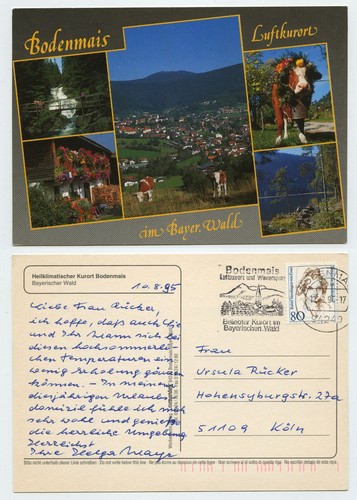 Bodenmais
Luftkurort
im Bayer. Wald
Heilklimatischer Kurort Bodenmais
Bayerischer Wald
10.8.95
Liebe Frau Rücker,
ich hoffe, daß auch Sie
und Ihr Mann sich bei
diesen hochsommerli-
chen Temperaturen ein
wenig Erholung gönnen
können. - In meinem
diesjährigen Urlaubs-
domizil fühle ich mich
sehr wohl und genieße
die herrliche Umgebung
Herzlichst
Ihre Helga Mayr
Bodenmais
Luftkurort und Wintersport
Beliebter Kurort im
Bayerischen Wald
80
94249
Frau
Ursula Rücker
Hohensyburgstr. 27a
51109 Köln
Bitte nicht unterhalb dieser Linie schreiben